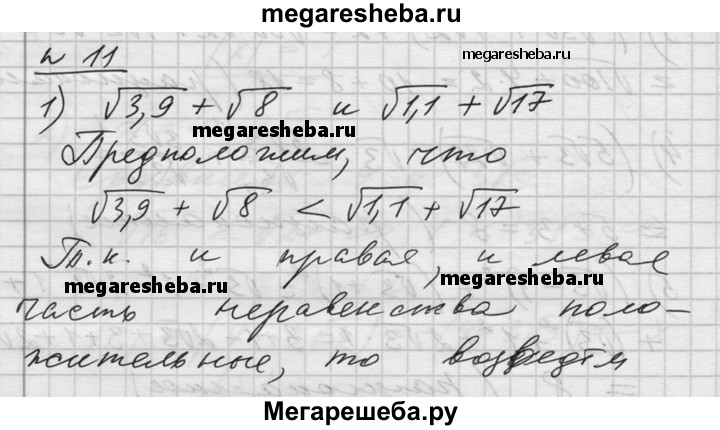 megaresheba.ru
№ 11
megaresheba.ru
1) √3,9 + √8 и √1,1 + √17
megaresheba.ru
Предположим, что
√3,9 + √8 < √1,1 + √17
Т.к. и правая, и левая
megaresheba.ru megaresheba.ru
часть неравенства поло-
жительные, то возведём
Мегарешеба.ру